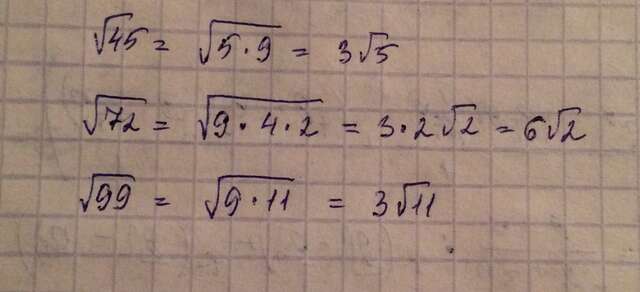 √45 = √5·9 = 3√5
√72 = √9·4·2 = 3·2√2 = 6√2
√99 = √9·11 = 3√11